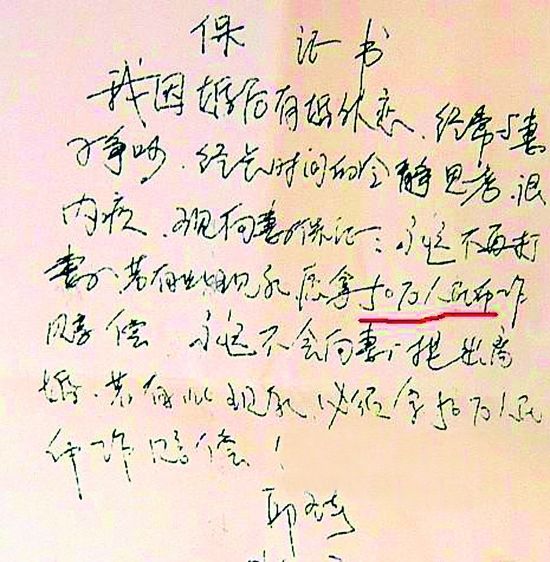 保证书
我因婚后有婚外恋、经常与妻
子争吵、经长时间的冷静思考、很
内疚、现向妻子保证：永远不再打
妻子、若有此现象愿拿50万人民币作
赔偿 永远不会向妻子提出离
婚、若有此现象、必须拿50万人民
币作赔偿！